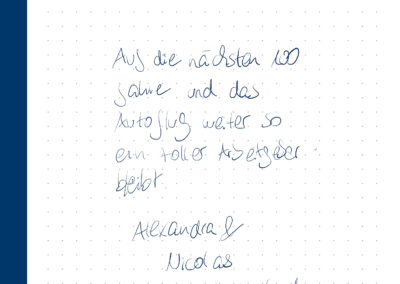 Auf die nächsten 100
Jahre und das
Autoflug weiter so
ein toller Arbeitgeber
bleibt.
Alexandra &
Nicolas